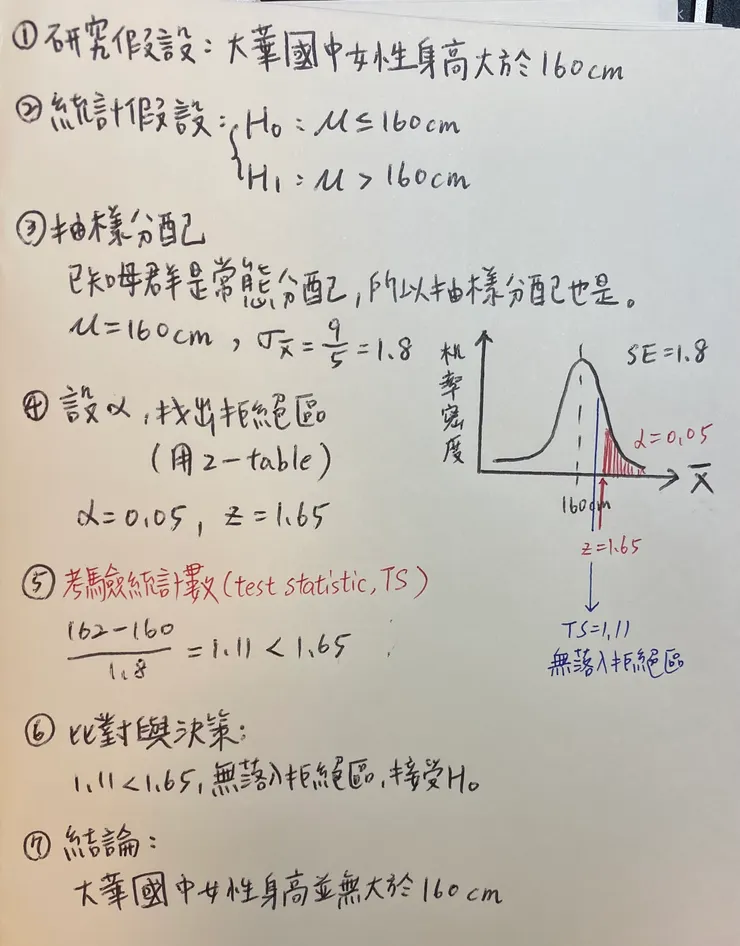 ① 研究假設：大華國中女性身高大於160cm
② 統計假設：H₀：μ≤160cm
H₁：μ>160cm
③ 抽樣分配
已知母群是常態分配，所以抽樣分配也是。
μ=160cm，σx̄=9/5=1.8
機率密度
SE=1.8
α=0.05
X̄
160cm
z=1.65
TS=1.11
無落入拒絕區
④ 設α，找出拒絕區
(用z-table)
α=0.05，z=1.65
⑤ 考驗統計數(test statistic, TS)
162-160/1.8=1.11<1.65
⑥ 比對與決策：
1.11<1.65，無落入拒絕區，接受H₀
⑦ 結論：
大華國中女性身高並無大於160cm